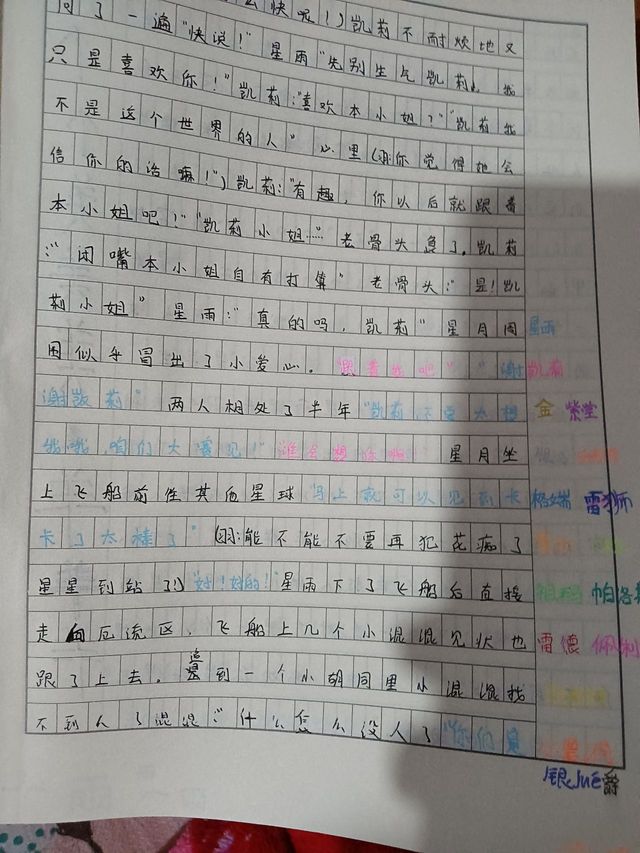 问了一遍"快说！"星雨"先别生气凯莉，我
么快呢！）凯莉不耐烦地又
只是喜欢你！"凯莉："喜欢本小姐？""凯莉我
不是这个世界的人"心里（羽：你觉得她会
信你的话嘛！"）凯莉："有趣，你以后就跟着
本小姐吧！""凯莉小姐……老骨头急了。凯莉
："闭嘴本小姐自有打算"老骨头："是！凯
莉小姐"星雨："真的吗，凯莉"星月周 星雨
围似乎冒出了小爱心。"跟着我吧""谢 凯莉
谢凯莉"两人相处了半年"凯莉不要太想 金 紫堂
我哦，咱们大赛见！""谁会想你啊！"星月坐
上飞船前往其他星球"马上就可以见到卡 格瑞 雷狮
卡了太棒了"（羽：能不能不要再犯花痴了
星星到站了）"好！好的！"星雨下了飞船后直接 祖玛 帕洛斯
走向反流区，飞船上几个小混混见状也 雷德 佩利
跟了上去，追到一个小胡同里小混混找
不到人了混混："什么怎么没人了"你们是
银Jué爵